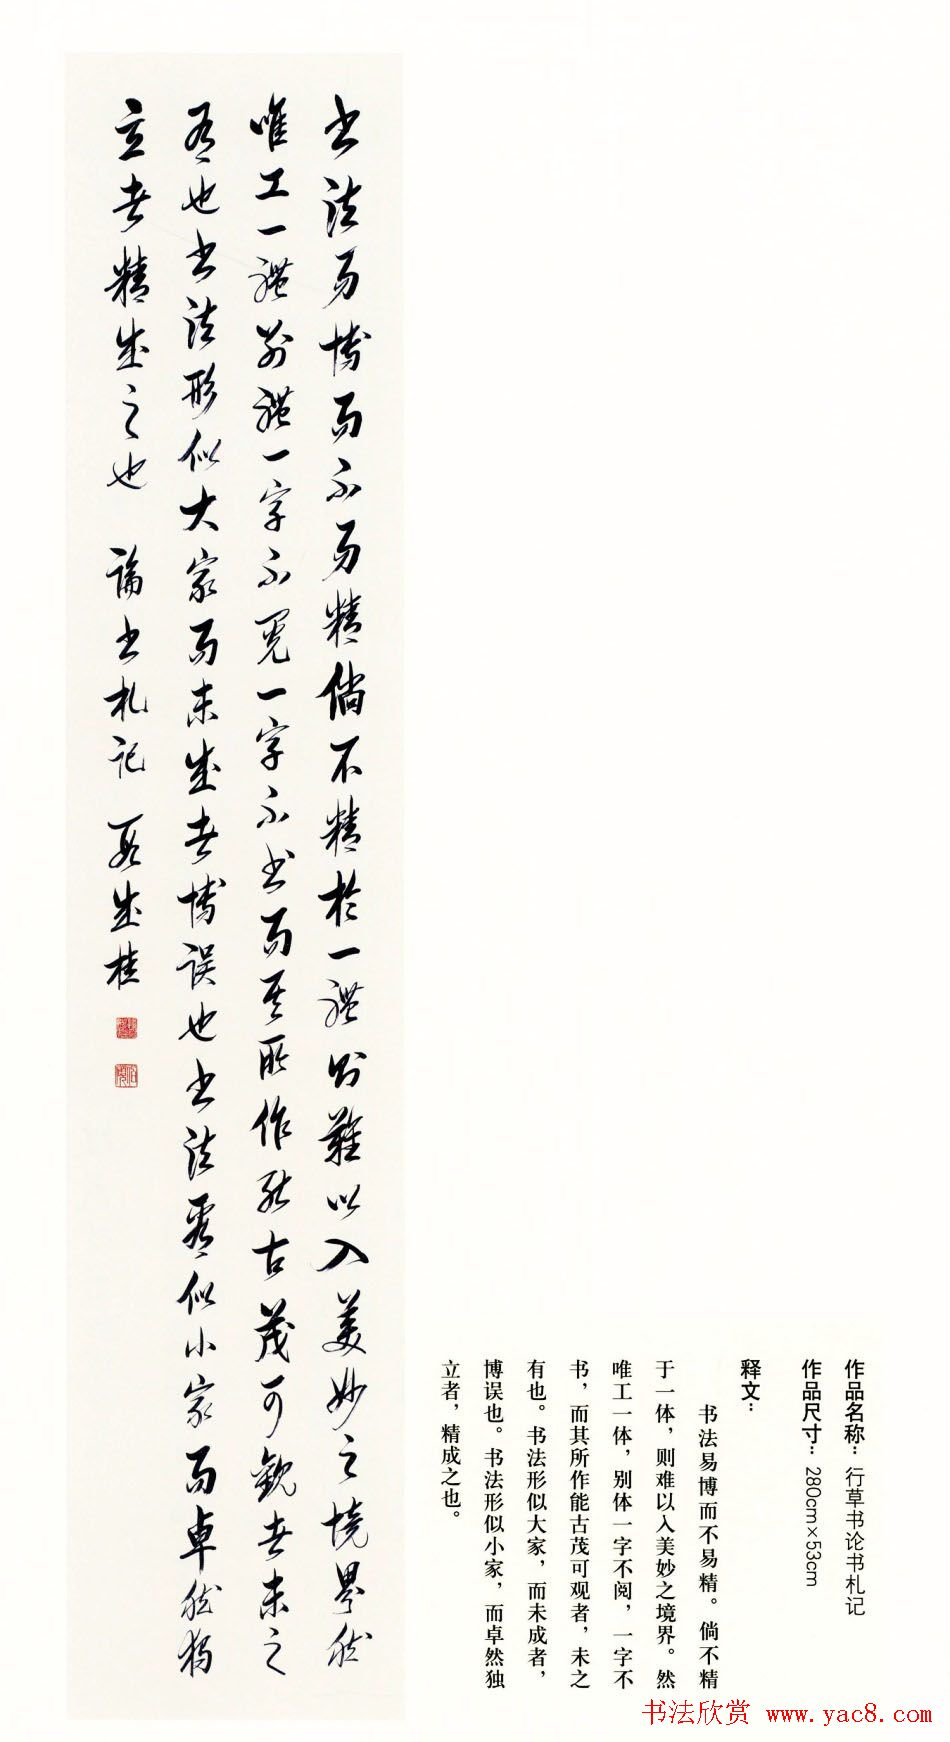 書法易博而不易精倘不精於一體則難以入美妙之境界然
唯工一體别體一字不閲一字不書而其所作能古茂可觀者未之
有也書法形似大家而未成者博误也書法看似小家而卓然獨
立者精成之也 論書札记 段成桂
作品名称：行草书论书札记
作品尺寸：280cm×53cm
释文：
书法易博而不易精。倘不精
于一体，则难以入美妙之境界。然
唯工一体，别体一字不阅，一字不
书，而其所作能古茂可观者，未之
有也。书法形似大家，而未成者，
博误也。书法形似小家，而卓然独
立者，精成之也。
书法欣赏 www.yac8.com